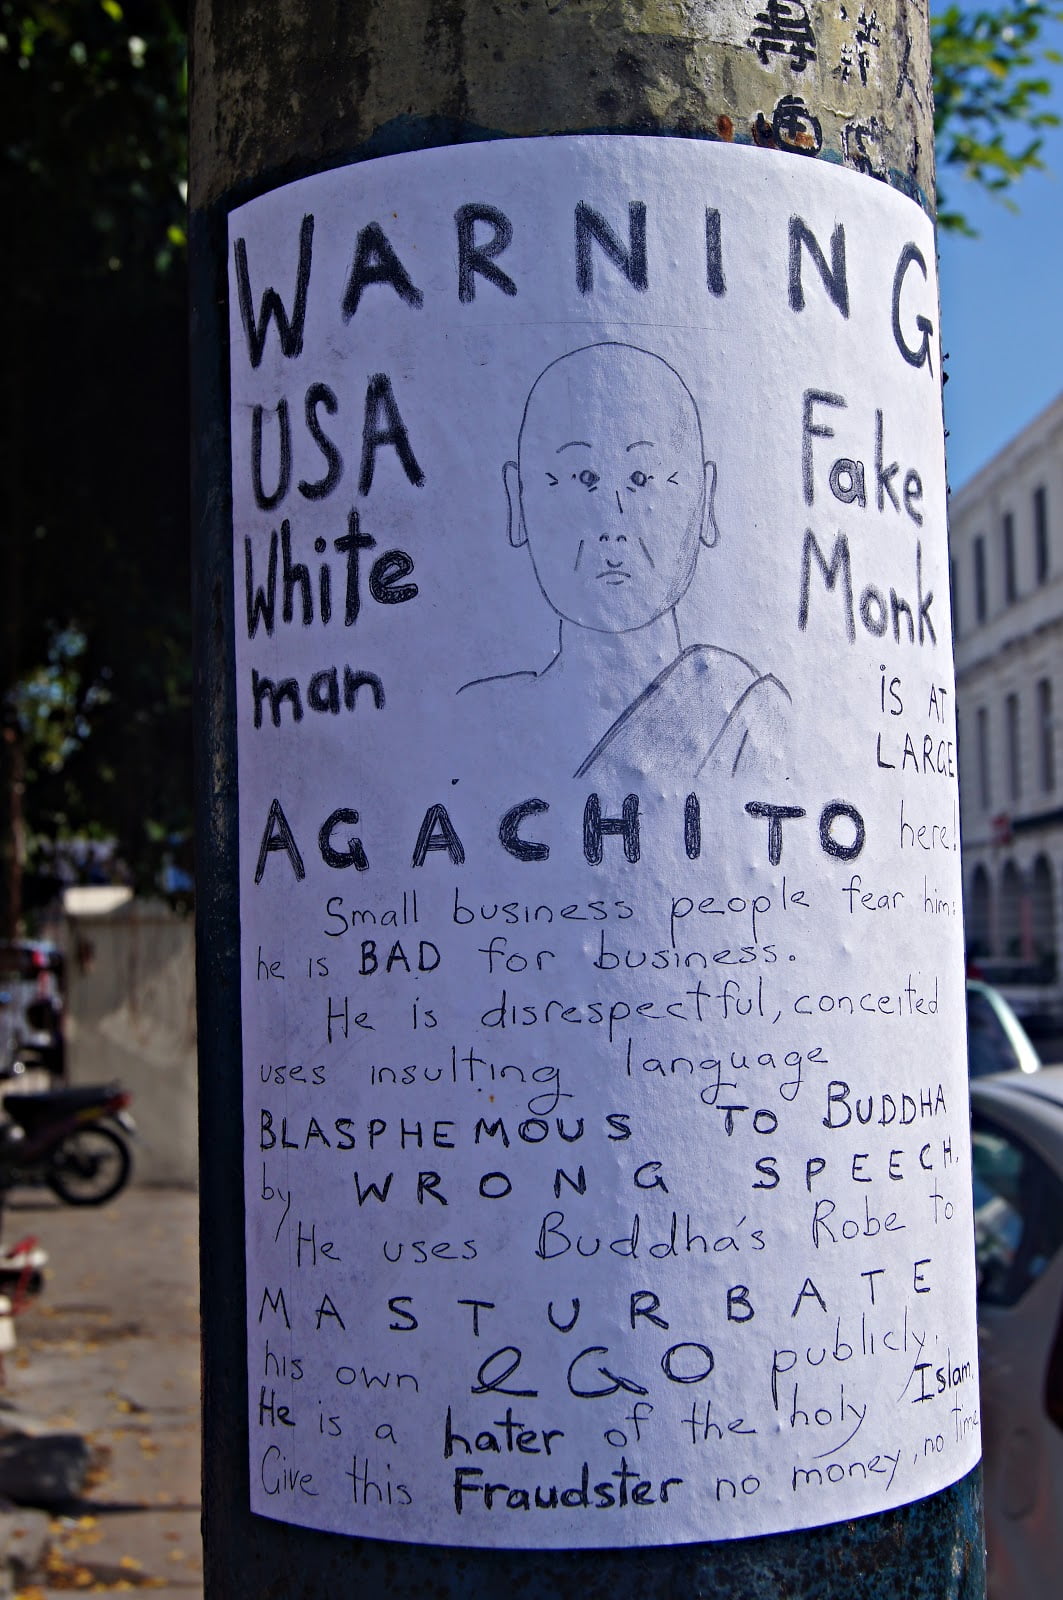 WARNING
USA
White
man
Fake
Monk
is AT
LARGE
AGACHITO here!
Small business people fear him:
he is BAD for business.
He is disrespectful, conceited
uses insulting language
BLASPHEMOUS TO BUDDHA
by WRONG SPEECH.
He uses Buddha's Robe to
MASTURBATE
his own eGO publicly.
He is a hater of the holy Islam.
Give this Fraudster no money, no time